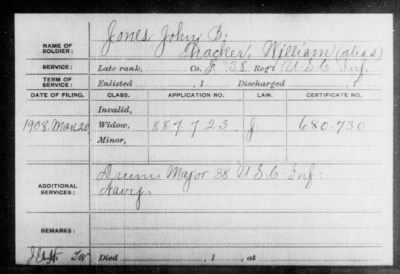 Jones John D.
NAME OF SOLDIER: Thacker, William (alias)
SERVICE: Late rank, Co. F, 38 Reg't U.S.C. Inf.
TERM OF SERVICE: Enlisted , 1 Discharged , 1
DATE OF FILING. CLASS. APPLICATION NO. LAW. CERTIFICATE NO.
Invalid,
1908 Mar 20 Widow, 887723 J. 680.730
Minor,
ADDITIONAL SERVICES: Drum Major 38 U.S.C. Inf:
Navy.
REMARKS:
Died , 1 , at